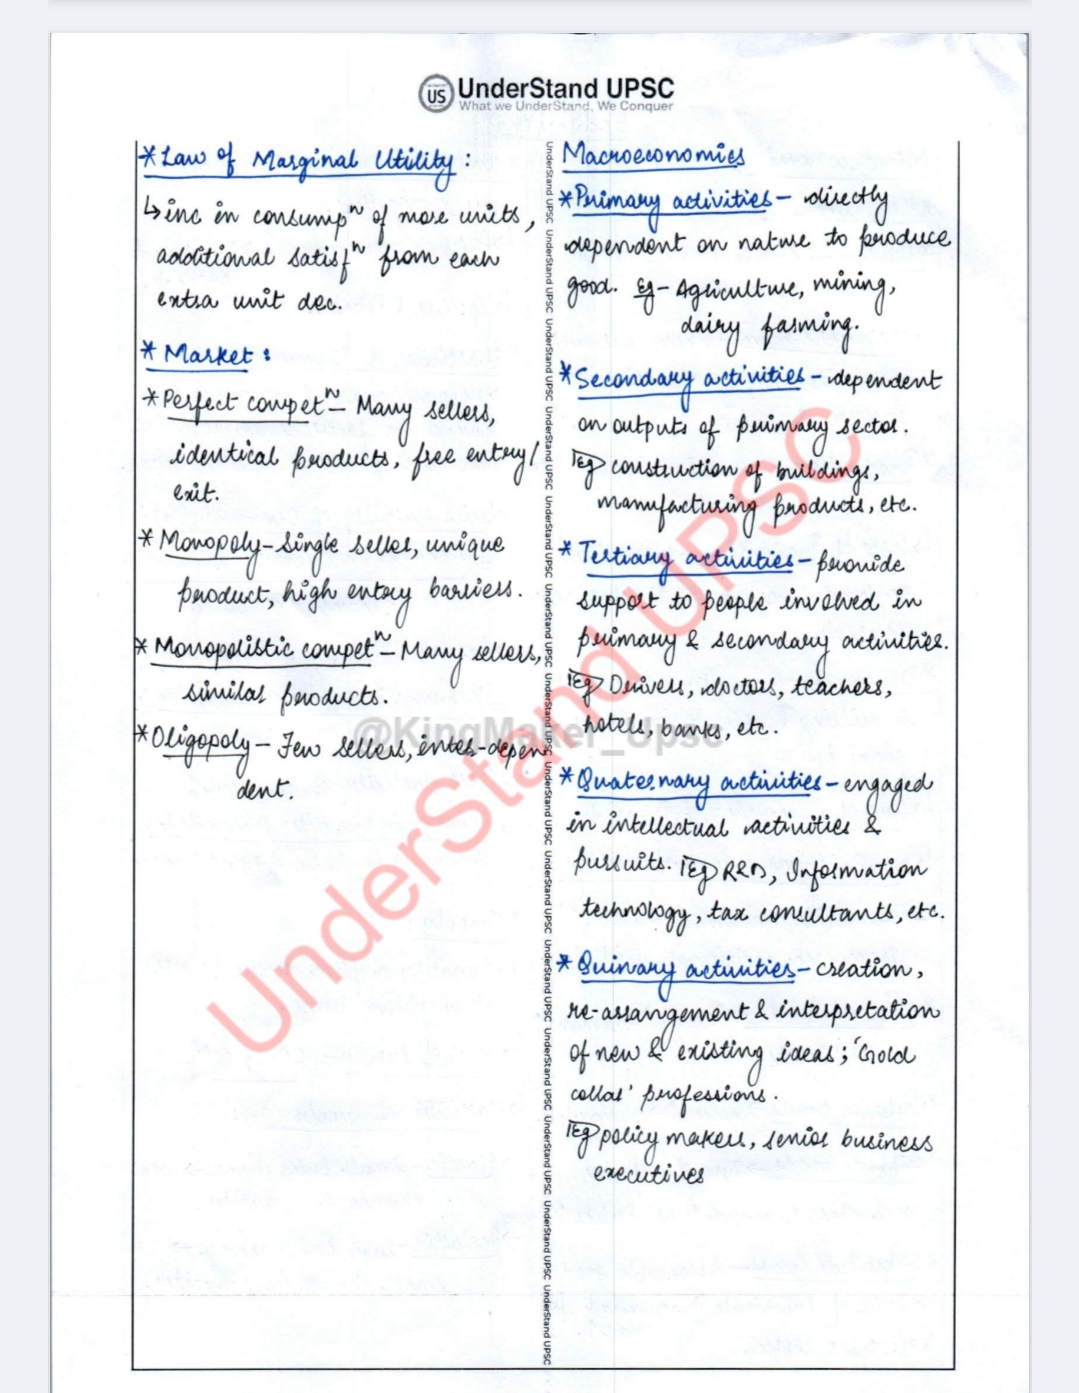 US UnderStand UPSC
What we UnderStand, We Conquer
* Law of Marginal Utility :
↳ inc in consumpⁿ of more units,
additional satisfⁿ from each
extra unit dec.
* Market :
* Perfect competⁿ – Many sellers,
identical products, free entry/
exit.
* Monopoly – Single seller, unique
product, high entry barriers.
* Monopolistic competⁿ – Many sellers,
similar products.
* Oligopoly – Few sellers, inter-depen
dent.
Macroeconomics
* Primary activities – directly
dependent on nature to produce
good. Eg – Agriculture, mining,
dairy farming.
* Secondary activities – dependent
on outputs of primary sector.
Eg construction of buildings,
manufacturing products, etc.
* Tertiary activities – provide
support to people involved in
primary & secondary activities.
Eg Drivers, doctors, teachers,
hotels, banks, etc.
* Quaternary activities – engaged
in intellectual activities &
pursuits. Eg R&D, Information
technology, tax consultants, etc.
* Quinary activities – creation,
re-arrangement & interpretation
of new & existing ideas ; 'Gold
collar' professions.
Eg policy makers, senior business
executives
UnderStand UPSC UnderStand UPSC UnderStand UPSC UnderStand UPSC UnderStand UPSC UnderStand UPSC UnderStand UPSC UnderStand UPSC UnderStand UPSC UnderStand UPSC UnderStand UPSC UnderStand UPSC UnderStand UPSC UnderStand UPSC
UnderStand UPSC
@KingMaker_Upsc